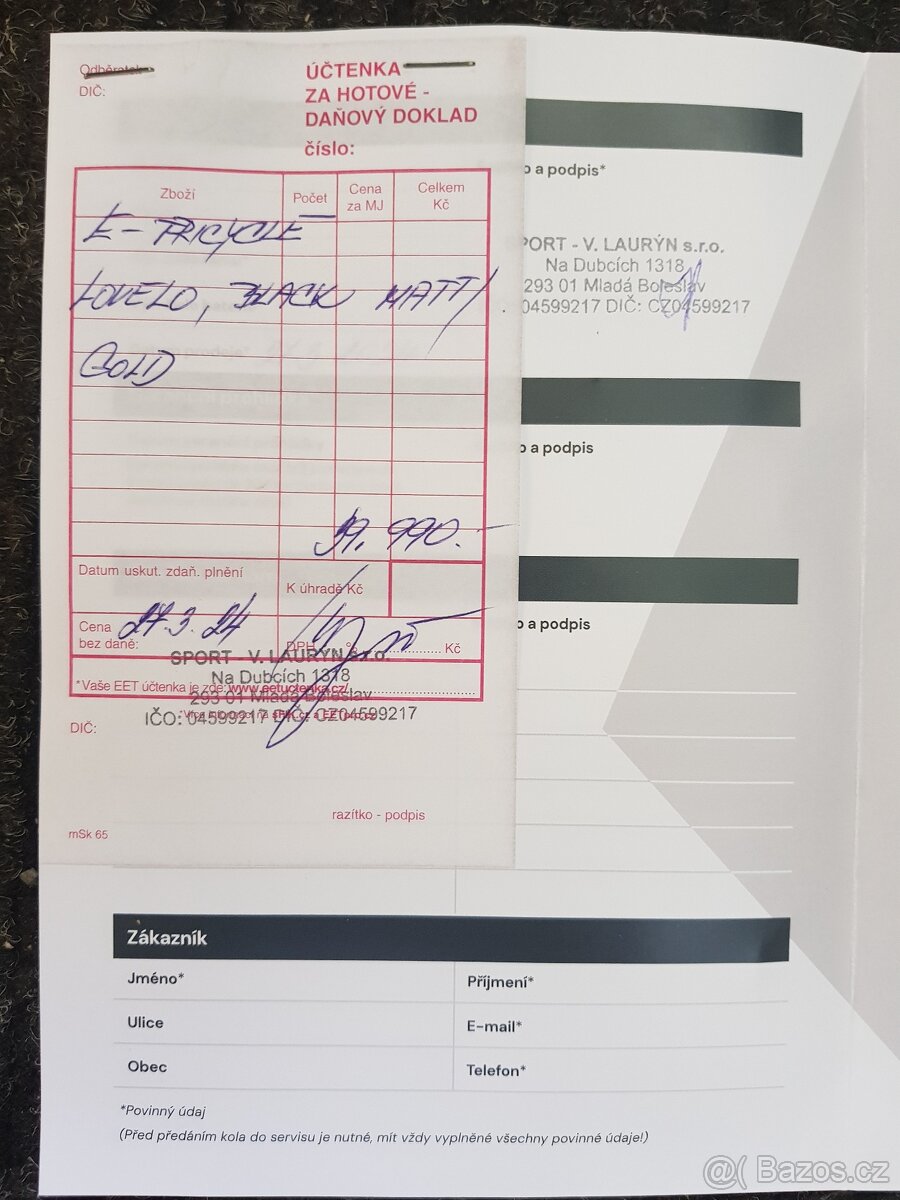 Odběratel
DIČ:
ÚČTENKA
ZA HOTOVÉ -
DAŇOVÝ DOKLAD
číslo:
Zboží
Počet
Cena
za MJ
Celkem
Kč
E-TRICYCLE
LOVELO, BLACK MATT/
GOLD
39.990.-
Datum uskut. zdaň. plnění
K úhradě Kč
27.3.24
Cena
bez daně:
DPH % Kč
SPORT - V. LAURÝN s.r.o.
Na Dubcích 1318
*Vaše EET účtenka je zde: www.eetuctenka.cz/
293 01 Mladá Boleslav
IČO: 04599217 DIČ: CZ04599217
DIČ:
razítko - podpis
mSk 65
o a podpis*
PORT - V. LAURÝN s.r.o.
Na Dubcích 1318
293 01 Mladá Boleslav
04599217 DIČ: CZ04599217
o a podpis
o a podpis
Zákazník
Jméno*
Příjmení*
Ulice
E-mail*
Obec
Telefon*
*Povinný údaj
(Před předáním kola do servisu je nutné, mít vždy vyplněné všechny povinné údaje!)
@( Bazos.cz